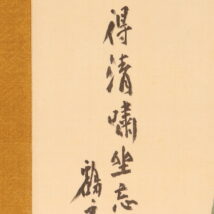 得清嘯坐忘
鶴